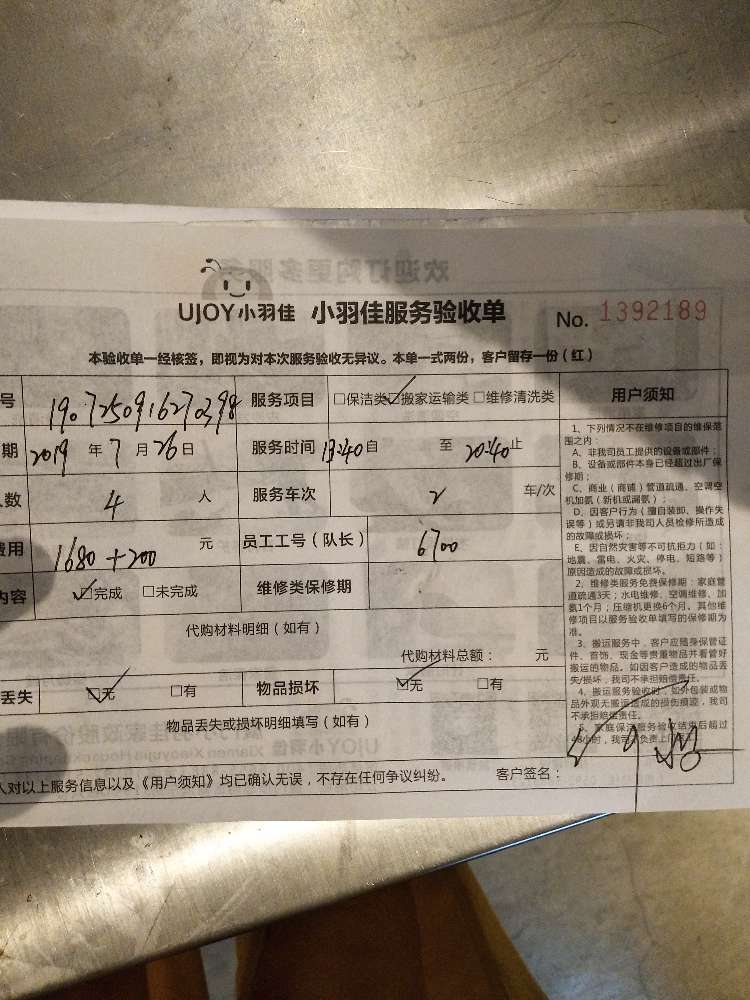 欢迎订购更多服务
UJOY小羽佳 小羽佳服务验收单 No. 1392189
本验收单一经核签，即视为对本次服务验收无异议。本单一式两份，客户留存一份（红）
号 1907250916270398 服务项目 □保洁类☑搬家运输类 □维修清洗类
期 2019 年 7 月 26 日 服务时间 13:40 自 至 20:40 止
人数 4 人 服务车次 2 车/次
费用 1680+200 元 员工工号（队长） 6700
内容 ☑完成 □未完成 维修类保修期
代购材料明细（如有）
代购材料总额： 元
丢失 ☑无 □有 物品损坏 ☑无 □有
物品丢失或损坏明细填写（如有）
人对以上服务信息以及《用户须知》均已确认无误，不存在任何争议纠纷。 客户签名：
用户须知
1、下列情况不在维修项目的维保范
围之内：
A、非我司员工提供的设备或部件；
B、设备或部件本身已经超过出厂保
修期；
C、商业（商铺）管道疏通、空调空
机加氨（新机或漏氨）；
D、因客户行为（擅自装卸、操作失
误等）或另请非我司人员检修所造成
的故障或损坏；
E、因自然灾害等不可抗拒力（如：
地震、雷电、火灾、停电、短路等）
原因造成的故障或损坏。
2、维修类服务免费保修期：家庭管
道疏通3天；水电维修、空调维修、加
氨1个月；压缩机更换6个月。其他维
修项目以服务验收单填写的保修期为
准。
3、搬运服务中，客户应随身保管证
件、首饰、现金等贵重物品并看管好
搬运的物品。如因客户造成的物品丢
失/损坏，我司不承担赔偿责任。
4、搬运服务验收时，如外包装或物
品外观无搬运造成的损伤痕迹，我司
不承担赔偿责任。
5、家庭保洁服务验收结束后超过
48小时，我司不负责上门返工。